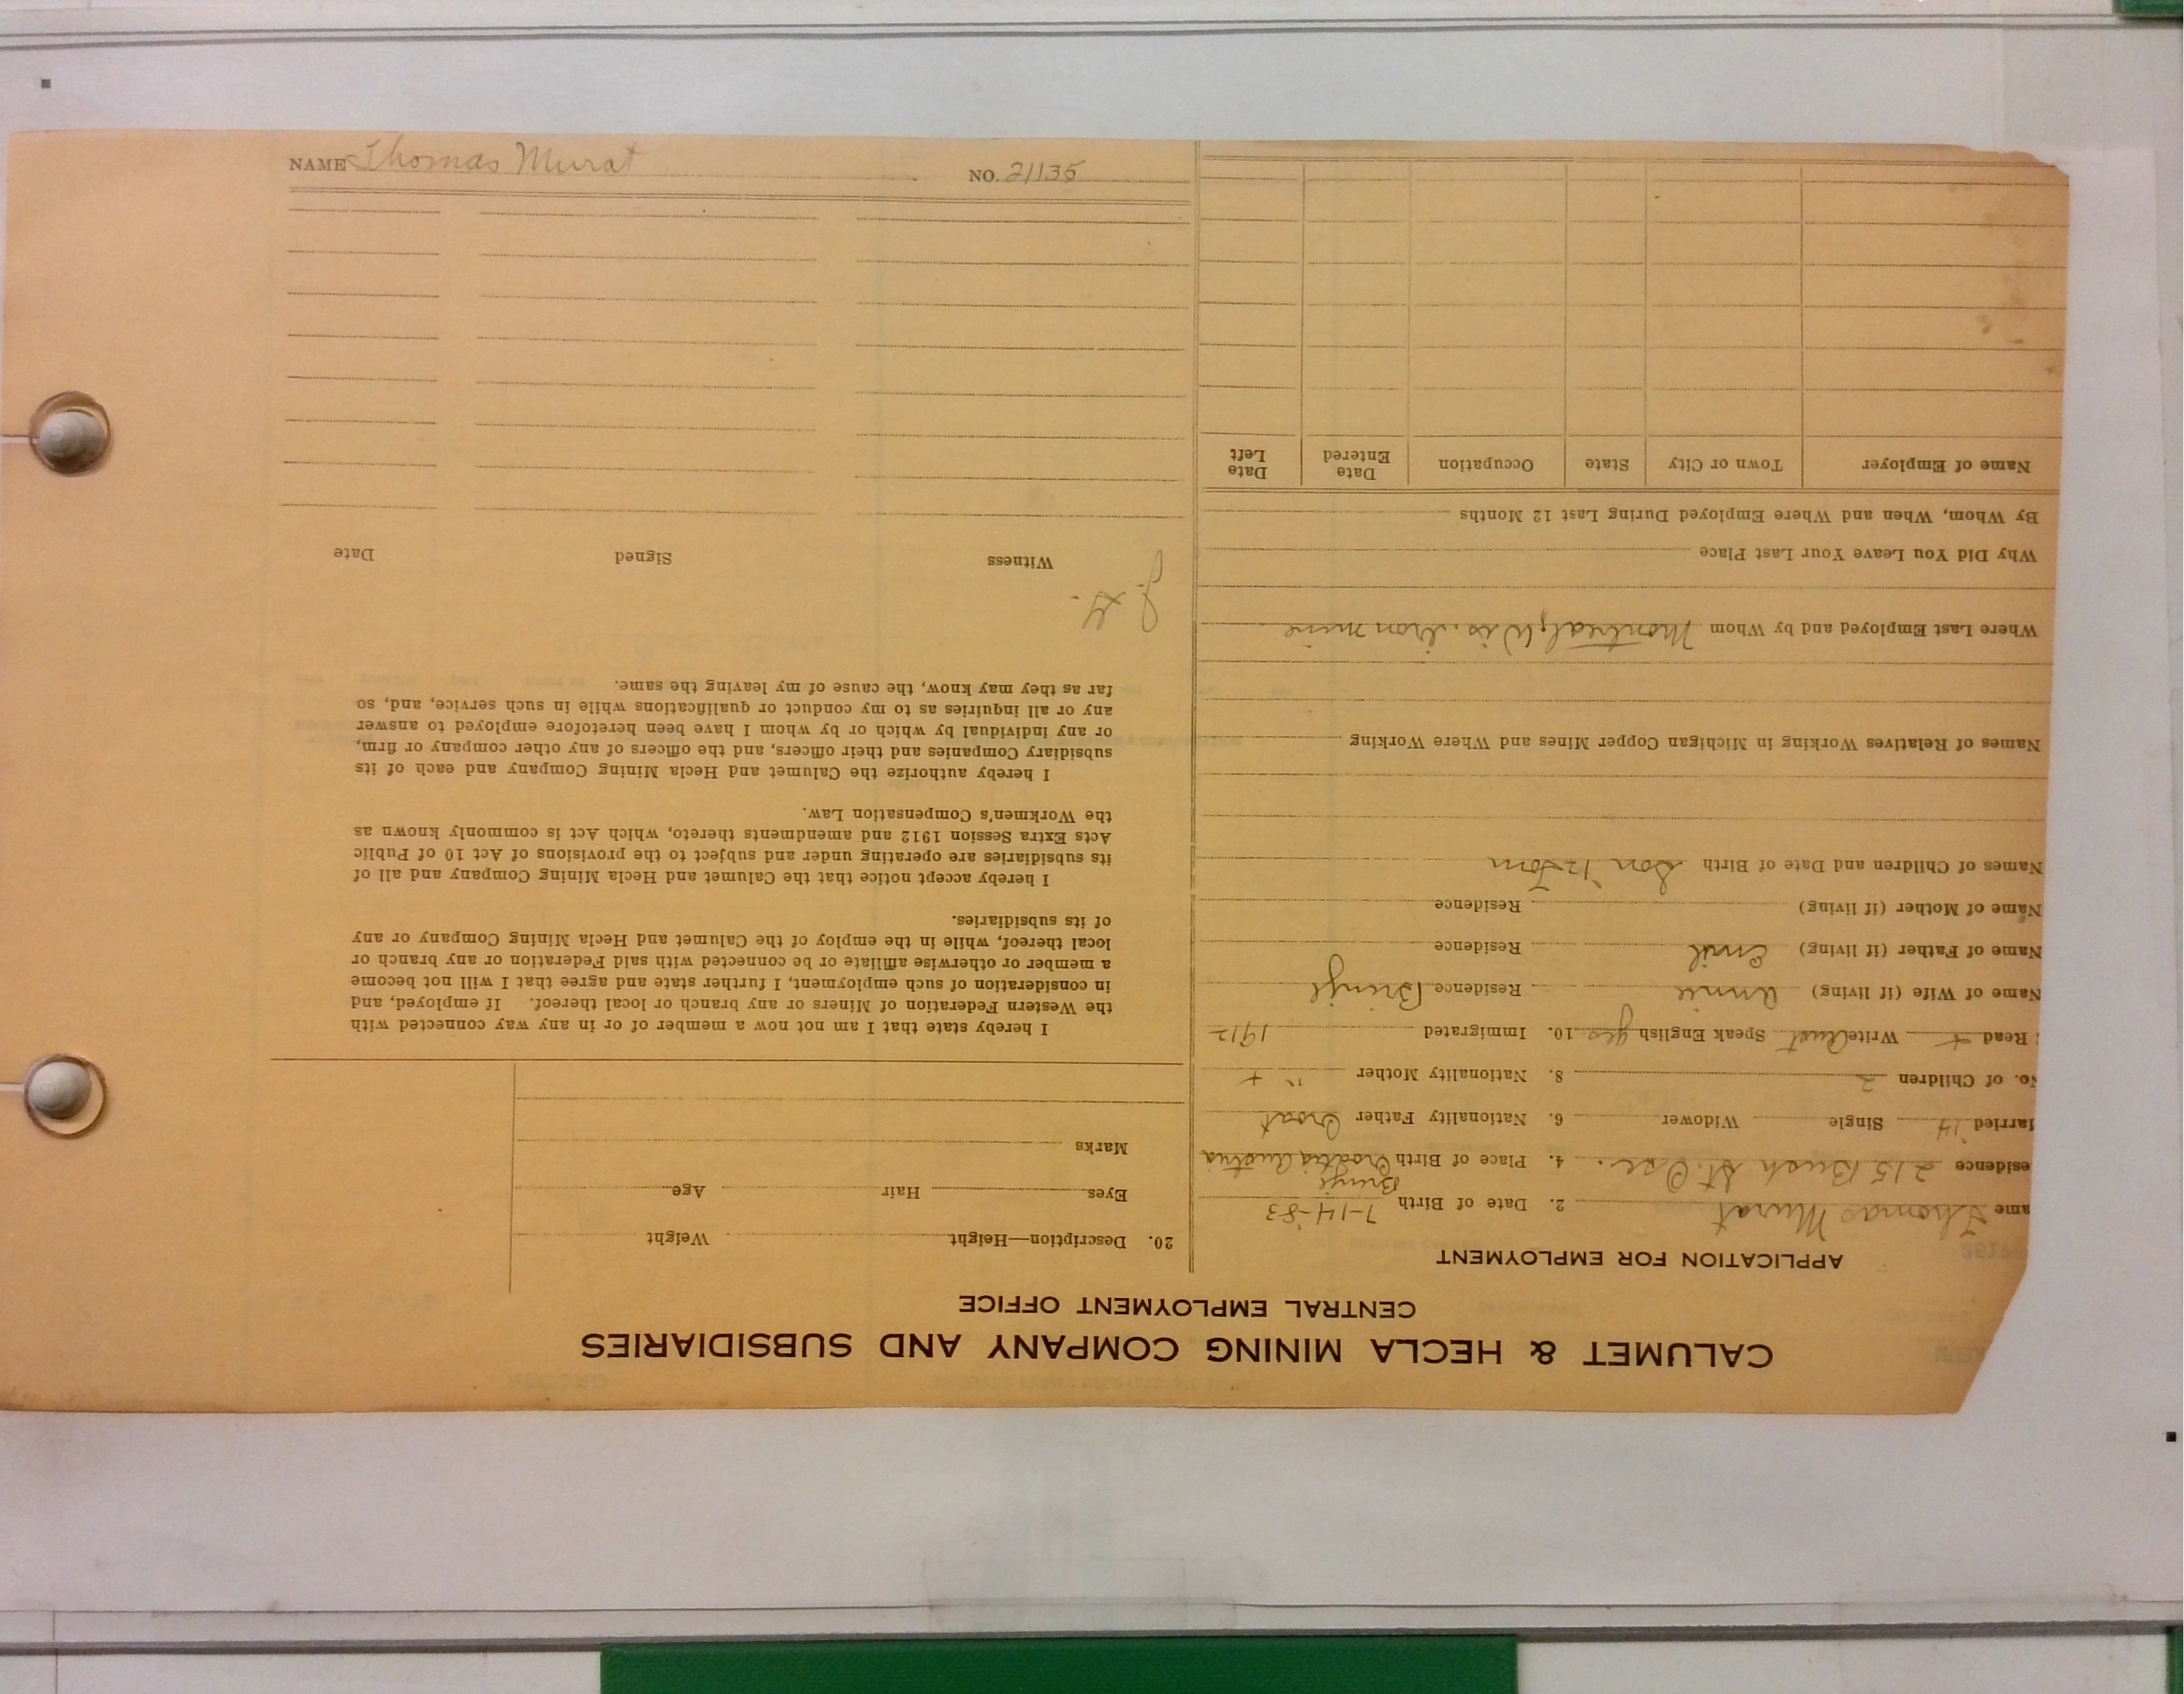 CALUMET & HECLA MINING COMPANY AND SUBSIDIARIES
CENTRAL EMPLOYMENT OFFICE
APPLICATION FOR EMPLOYMENT
ame Thomas Murat 2. Date of Birth 7-14-83
Brinje
esidence 215 Bush St. Osc. 4. Place of Birth Croatia Austria
arried 14 Single Widower 6. Nationality Father Croat
o. of Children 2 8. Nationality Mother " +
Read + Write Aust Speak English yes 10. Immigrated 1912
Name of Wife (if living) Annie Residence Brinje
Name of Father (if living) Emil Residence
Name of Mother (if living) Residence
Names of Children and Date of Birth Son 12 Tom
Names of Relatives Working in Michigan Copper Mines and Where Working
Where Last Employed and by Whom Montreal, Wis. Iron mine
Why Did You Leave Your Last Place
By Whom, When and Where Employed During Last 12 Months
Name of Employer Town or City State Occupation Date Entered Date Left
20. Description—Height Weight
Eyes Hair Age
Marks
I hereby state that I am not now a member of or in any way connected with
the Western Federation of Miners or any branch or local thereof. If employed, and
in consideration of such employment, I further state and agree that I will not become
a member or otherwise affiliate or be connected with said Federation or any branch or
local thereof, while in the employ of the Calumet and Hecla Mining Company or any
of its subsidiaries.
I hereby accept notice that the Calumet and Hecla Mining Company and all of
its subsidiaries are operating under and subject to the provisions of Act 10 of Public
Acts Extra Session 1912 and amendments thereto, which Act is commonly known as
the Workmen's Compensation Law.
I hereby authorize the Calumet and Hecla Mining Company and each of its
subsidiary Companies and their officers, and the officers of any other company or firm,
or any individual by which or by whom I have been heretofore employed to answer
any or all inquiries as to my conduct or qualifications while in such service, and, so
far as they may know, the cause of my leaving the same.
Witness Signed Date
NAME Thomas Murat NO. 21135